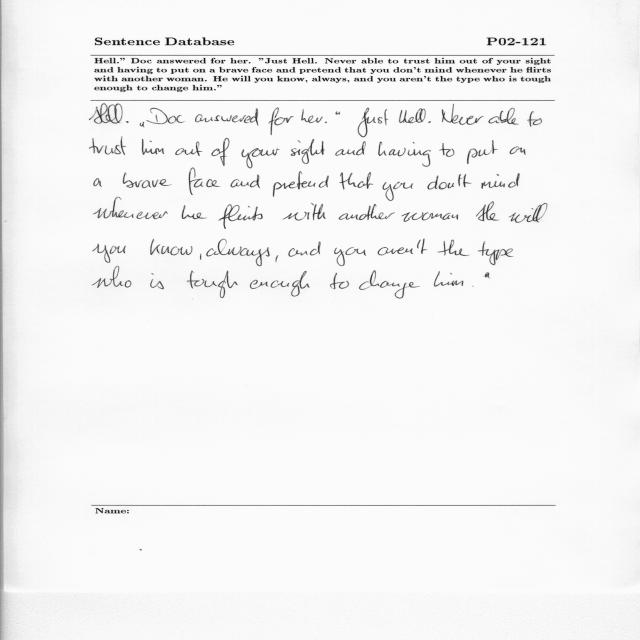 Sentence Database P02-121
Hell." Doc answered for her. "Just Hell. Never able to trust him out of your sight
and having to put on a brave face and pretend that you don't mind whenever he flirts
with another woman. He will you know, always, and you aren't the type who is tough
enough to change him."
Hell. „Doc answered for her." Just Hell. Never able to
trust him out of your sight and having to put on
a brave face and pretend that you don't mind
whenever he flirts with another woman He will
you know, always, and you aren't the type
who is tough enough to change him."
Name: